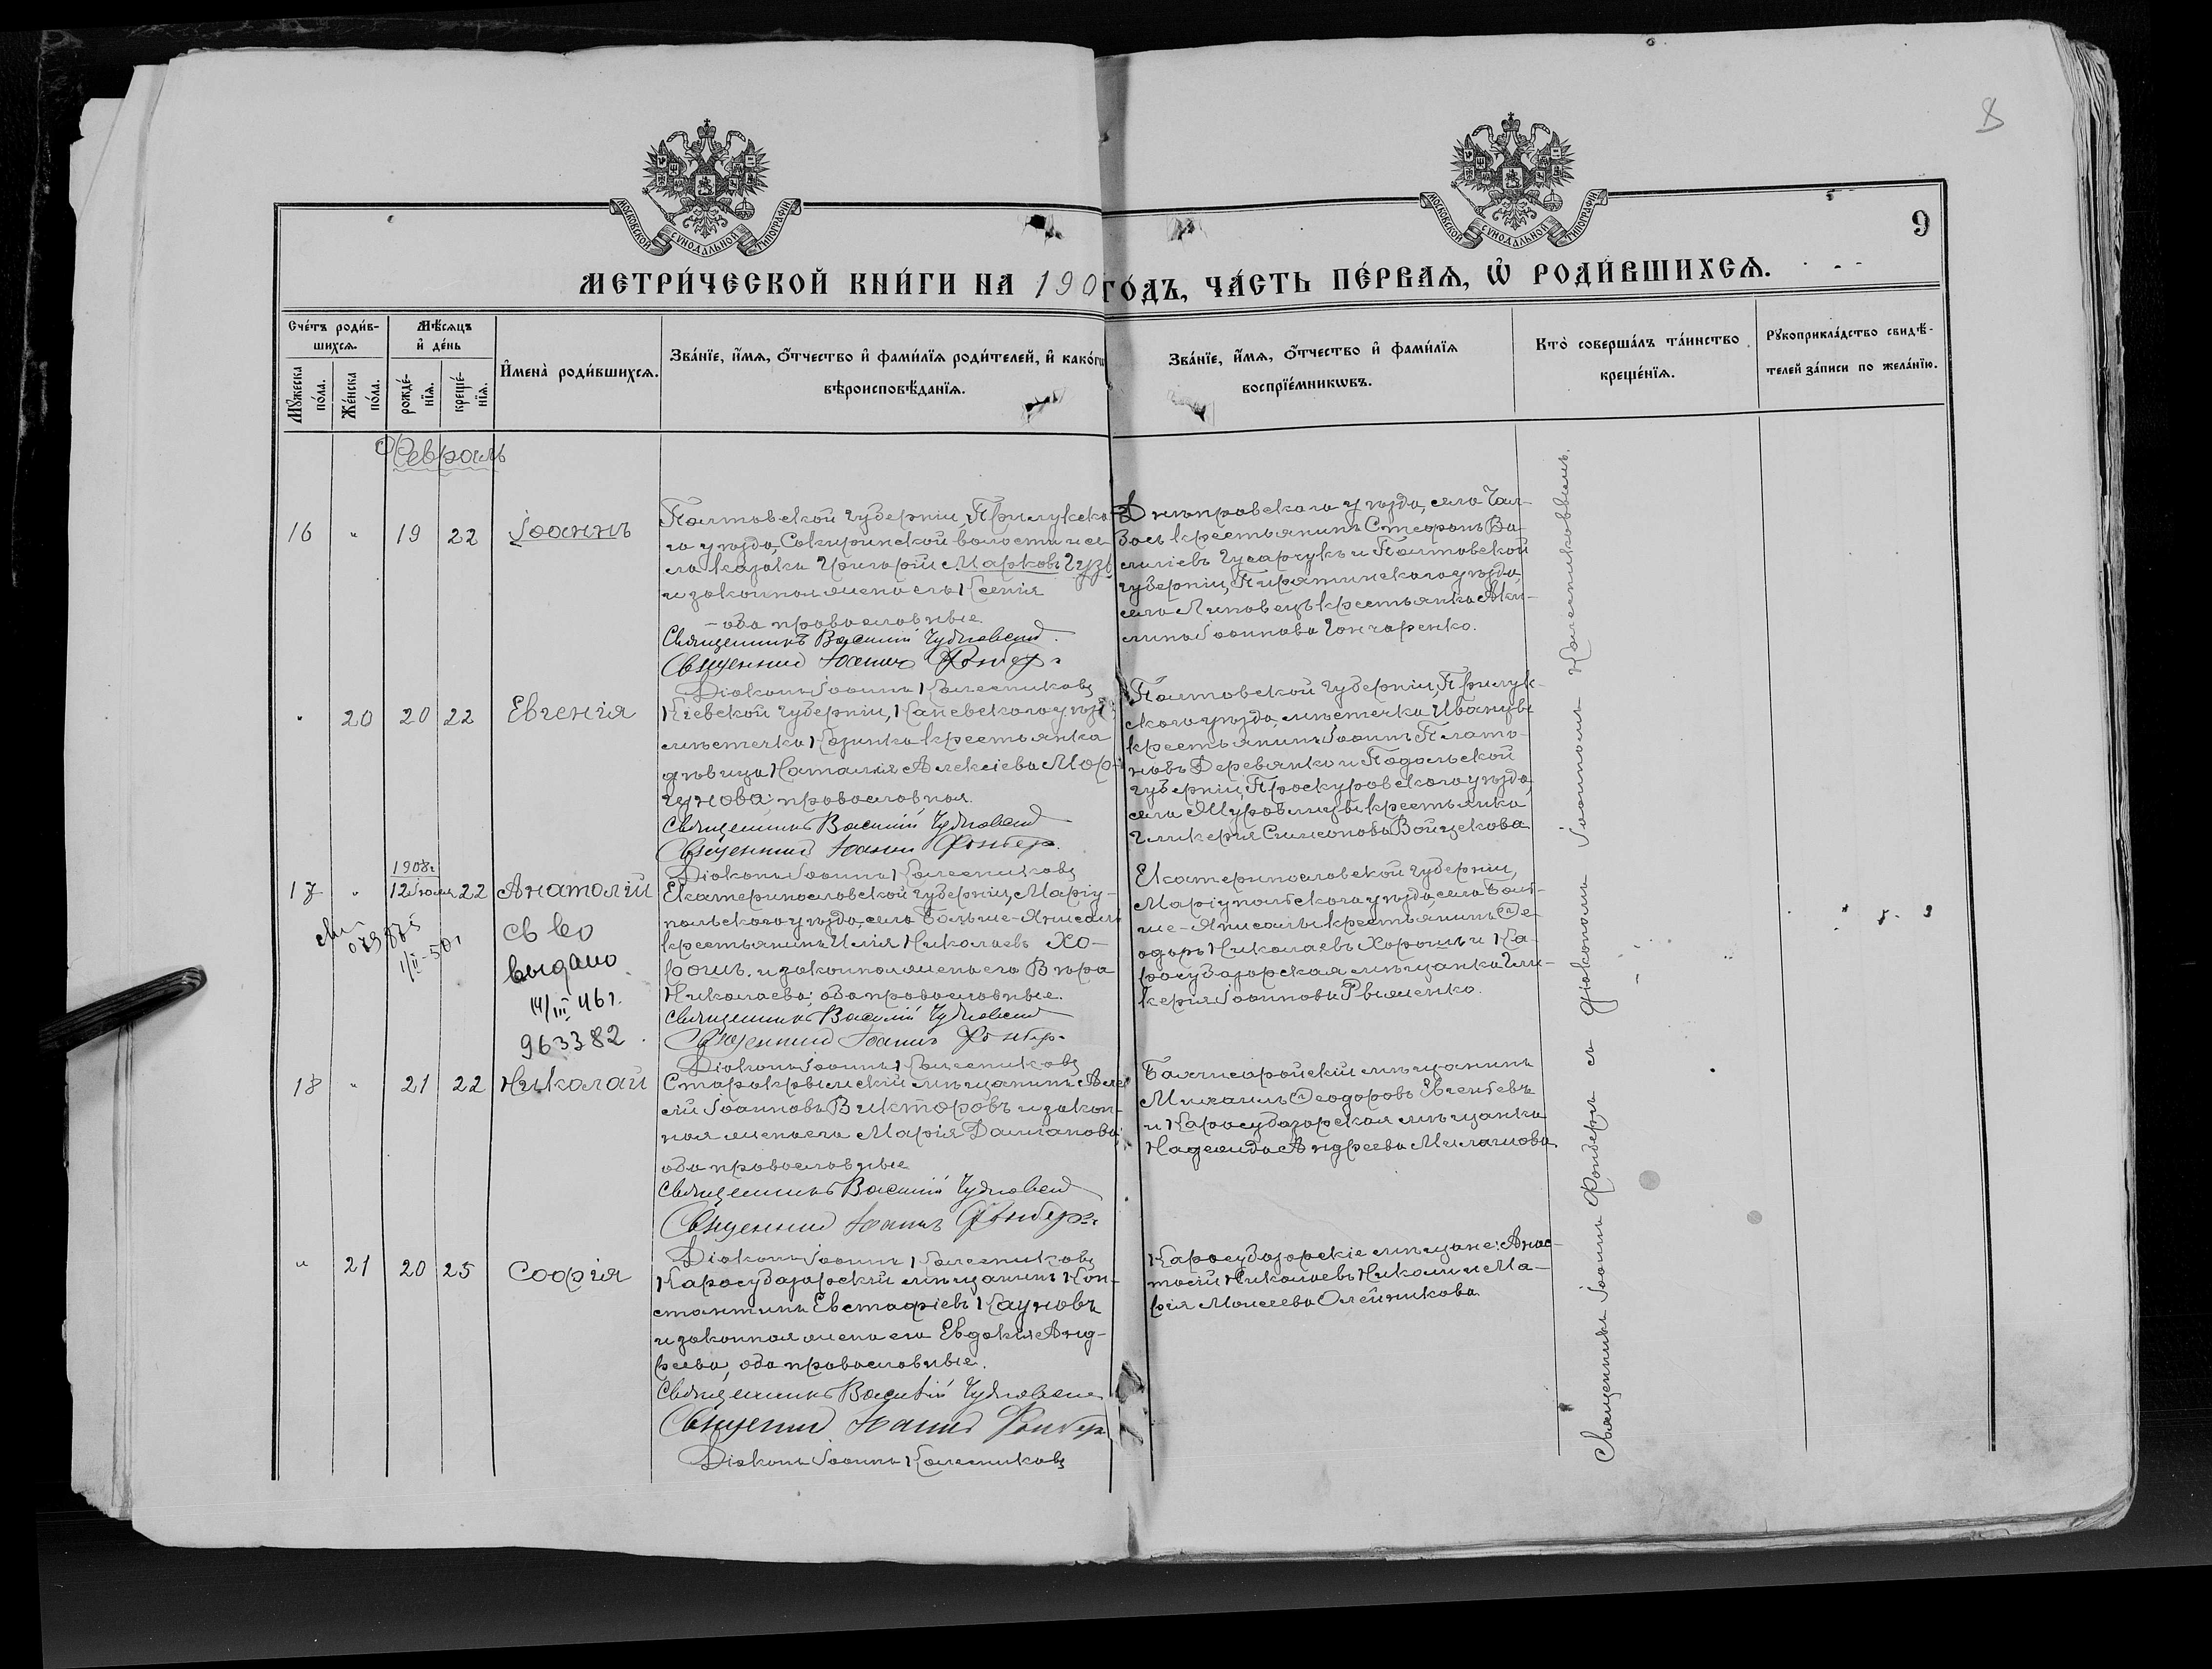 8
МОСКОВСКОЙ СѴНОДАЛЬНОЙ ТИПОГРАФІИ
МОСКОВСКОЙ СѴНОДАЛЬНОЙ ТИПОГРАФІИ
9
МЕТРИ́ЧЕСКОЙ КНИ́ГИ НА 190 ГО́ДЪ, ЧА́СТЬ ПЕ́РВАѦ, Ѿ РОДИ́ВШИХСѦ.
Сче́тъ роди́в-
шихсѧ.
Мѣ́сѧцъ
и҆ де́нь
И҆мена̀ роди́вшихсѧ.
Зва́нїе, и҆́мѧ, ѻ҆́тчество и҆ фами́лїѧ роди́телей, и҆ како́гѡ
вѣроисповѣ́данїѧ.
Мꙋ́жеска
по́ла.
Же́нска
по́ла.
рожде́-
нїѧ.
креще́-
нїѧ.
Зва́нїе, и҆́мѧ, ѻ҆́тчество и҆ фами́лїѧ
воспрїе́мникѡвъ.
Кто̀ соверша́лъ та́инство
креще́нїѧ.
Рꙋкоприкла́дство свидѣ́-
телей за́писи по жела́нїю.
Февраль
16 " 19 22 Іоаннъ
Полтовской губерніи, Прилукска-
го уѣзда, Сокиринской волости и се-
ла казакъ Григорій Марковъ Гузь
и законная жена его Ксенія
- оба православные
Священникъ Василій Чудновскій
Священникъ Іоаннъ Фонберг
Діаконъ Іоаннъ Колесниковъ
Днѣпровскаго уѣзда, села Чал-
басъ крестьянинъ Стефанъ Ва-
силіевъ Гусарчукъ и Полтовской
губерніи, Пирятинскаго уѣзда,
села Липовецъ крестьянка Аки-
лина Іоаннова Гончаренко.
" 20 20 22 Евгенія
Кіевской губерніи, Каневскаго уѣзда
мѣстечка Козинка крестьянка
дѣвица Наталія Алексіева Мор-
гунова православная.
Священникъ Василій Чудновскій
Священникъ Іоаннъ Фонберг.
Діаконъ Іоаннъ Колесниковъ
Полтовской губерніи, Прилук-
скаго уѣзда, мѣстечка Иваницы
крестьянинъ Іоаннъ Плато-
новъ Деревянко и Подольской
губерніи, Проскуровскаго уѣзда,
села крестьянка
Гликерія Симеонова Войцехова
1908г
17 " 12 Іюля 22 Анатолій
св во
выдано
14/III 46г.
963382
079875
1/II-50г
Екатеринославской губерніи, Маріу-
польскаго уѣзда, села Больше-Янисоля
крестьянинъ Илія Николаевъ Хо-
рошъ и законная жена его Вѣра
Николаева; оба православные.
Священникъ Василій Чудновскій
Священникъ Іоаннъ Фонберг.
Діаконъ Іоаннъ Колесниковъ
Екатеринославской губерніи,
Маріупольскаго уѣзда, села Боль-
ше-Янисоль крестьянинъ Ѳе-
одоръ Николаевъ Хорошъ и Ка-
расубазарская мѣщанка Гли-
керія Іоаннова
18 " 21 22 Николай
Старокрымскій мѣщанинъ Алек
сій Іоанновъ Викторовъ и закон-
ная жена его Марія Даміанова;
оба православные
Священникъ Василій Чудновскій
Священникъ Іоаннъ Фонберг
Діаконъ Іоаннъ Колесниковъ
Бахчисарайскій мѣщанинъ
Михаилъ Ѳеодоровъ Евгеньевъ
и Карасубазарская мѣщанка
Надежда Андреева Милашова
" 21 20 25 Софія
Карасубазарскій мѣщанинъ Кон-
стантинъ Евстафіевъ Кауновъ
и законная жена его Евдокія Анд-
реева, оба православные.
Священникъ Василій Чудновскій
Священникъ Іоаннъ Фонберг
Діаконъ Іоаннъ Колесниковъ
Карасубазарскіе мѣщане: Анас-
тасій Николаевъ Николи и Ма-
рія Моисеева Олейникова
Священникъ Іоаннъ Фонбергъ съ діакономъ Іоанномъ Колесниковымъ.